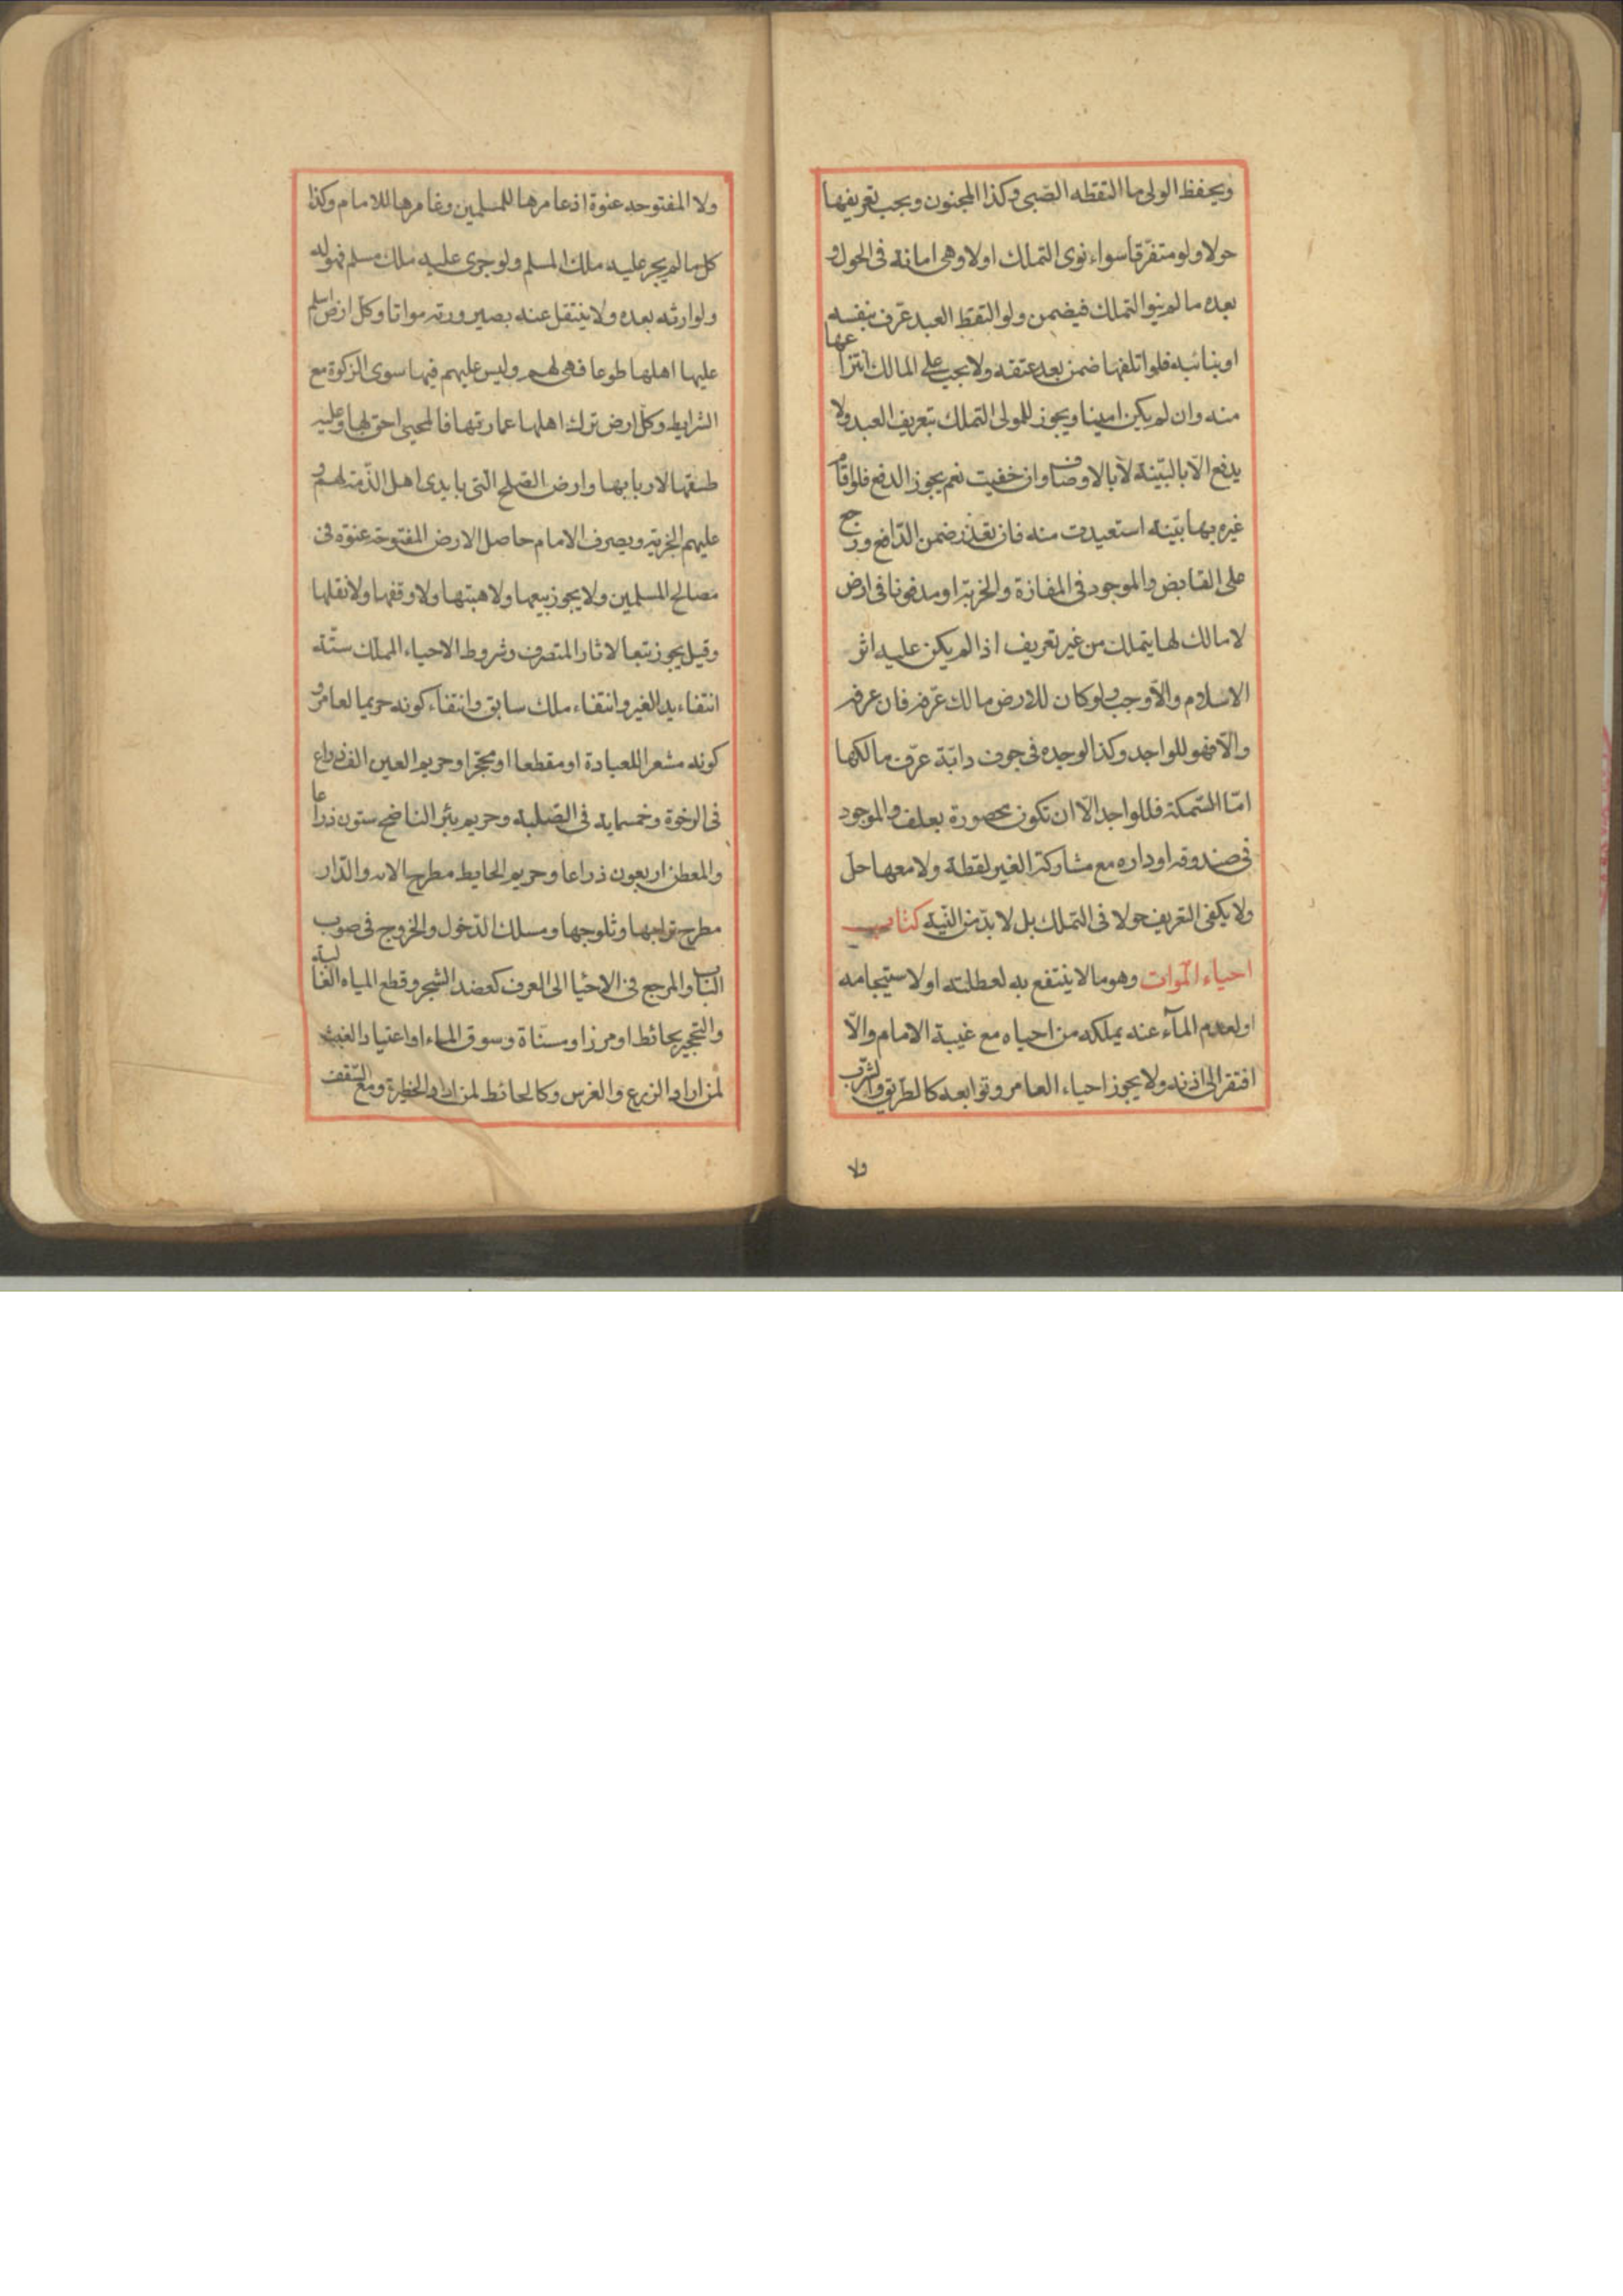 ويحفظ الولى ما التقطه الصّبى وكذا المجنون ويجب تعريفها
حولا ولو متفرّقا سواء نوى التملك اولا وهى امانة فى الحول و
بعده ما لم ينو التملك فيضمن ولو التقط العبد عرّف بنفسه
او بنائبه فلو اتلفها ضمن بعد عتقه ولا يجب على المالك انتزاعها
منه وان لم يكن امينا ويجوز للمولى التملك بتعريف العبد ولا
يدفع الّا بالبيّنة لا بالاوصاف وان خفيت نعم يجوز الدفع فلو اقام
غيره بها بيّنة استعيدت منه فان تعذر ضمن الدّافع ورجع
على القابض والموجود فى المفازة والخربة او مدفونا فى ارض
لا مالك لها يتملك من غير تعريف اذا لم يكن عليه اثر
الاسلام والّا وجب ولو كان للارض مالك عرّفه فان عرفه
والّا فهو للواجد وكذا لو وجده فى جوف دابّة عرّف مالكها
امّا السّمكة فللواجد الّا ان تكون محصورة بعلف والموجود
فى صندوقه او داره مع مشاركة الغير لقطة ولا معها حل
ولا يكفى التعريف حولا فى التملك بل لا بدّ من النّية كتاب
احياء الموات وهو ما لا ينتفع به لعطلته او لاستيجامه
او لعدم المآء عنه يملكه من احياه مع غيبة الامام والّا
افتقر الى اذنه ولا يجوز احياء العامر وتوابعه كالطريق والشرب
ولا
ولا المفتوحه عنوة اذ عامرها للمسلمين وغامرها للامام وكذا
كل ما لم يجر عليه ملك المسلم ولو جرى عليه ملك مسلم فهو له
ولوارثه بعده ولا ينتقل عنه بصيرورته مواتا وكل ارض اسلم
عليها اهلها طوعا فهى لهم وليس عليهم فيها سوى الزكوة مع
الشرايط وكل ارض ترك اهلها عمارتها فالمحيى احق بها وعليه
طسقها لاربابها وارض الصّلح التى بايدى اهل الذّمة لهم و
عليهم الجزية ويصرف الامام حاصل الارض المفتوحة عنوة فى
مصالح المسلمين ولا يجوز بيعها ولا هبتها ولا وقفها ولا نقلها
وقيل يجوز تبعا لاثار المتصرف وشروط الاحياء المملك ستّة
انتفاء يد الغير وانتفاء ملك سابق وانتفاء كونه حريما لعامر و
كونه مشعرا للعبادة او مقطعا او محجّرا وحريم العين الف ذراع
فى الرخوة وخمسماية فى الصّلبة وحريم بئر الناضح ستون ذراعا
والمعطن اربعون ذراعا وحريم الحايط مطرح الاته والدّار
مطرح ترابها وثلوجها ومسلك الدّخول والخروج فى صوب
الباب والمرجع فى الاحيا الى العرف كعضد الشجر وقطع المياه الغالبة
والتحجير بحائط او مرز او مسنّاة وسوق الماء او اعتياد الغيث
لمن اراد الزرع والغرس وكالحائط لمن اراد الحظيرة ومع السّقف